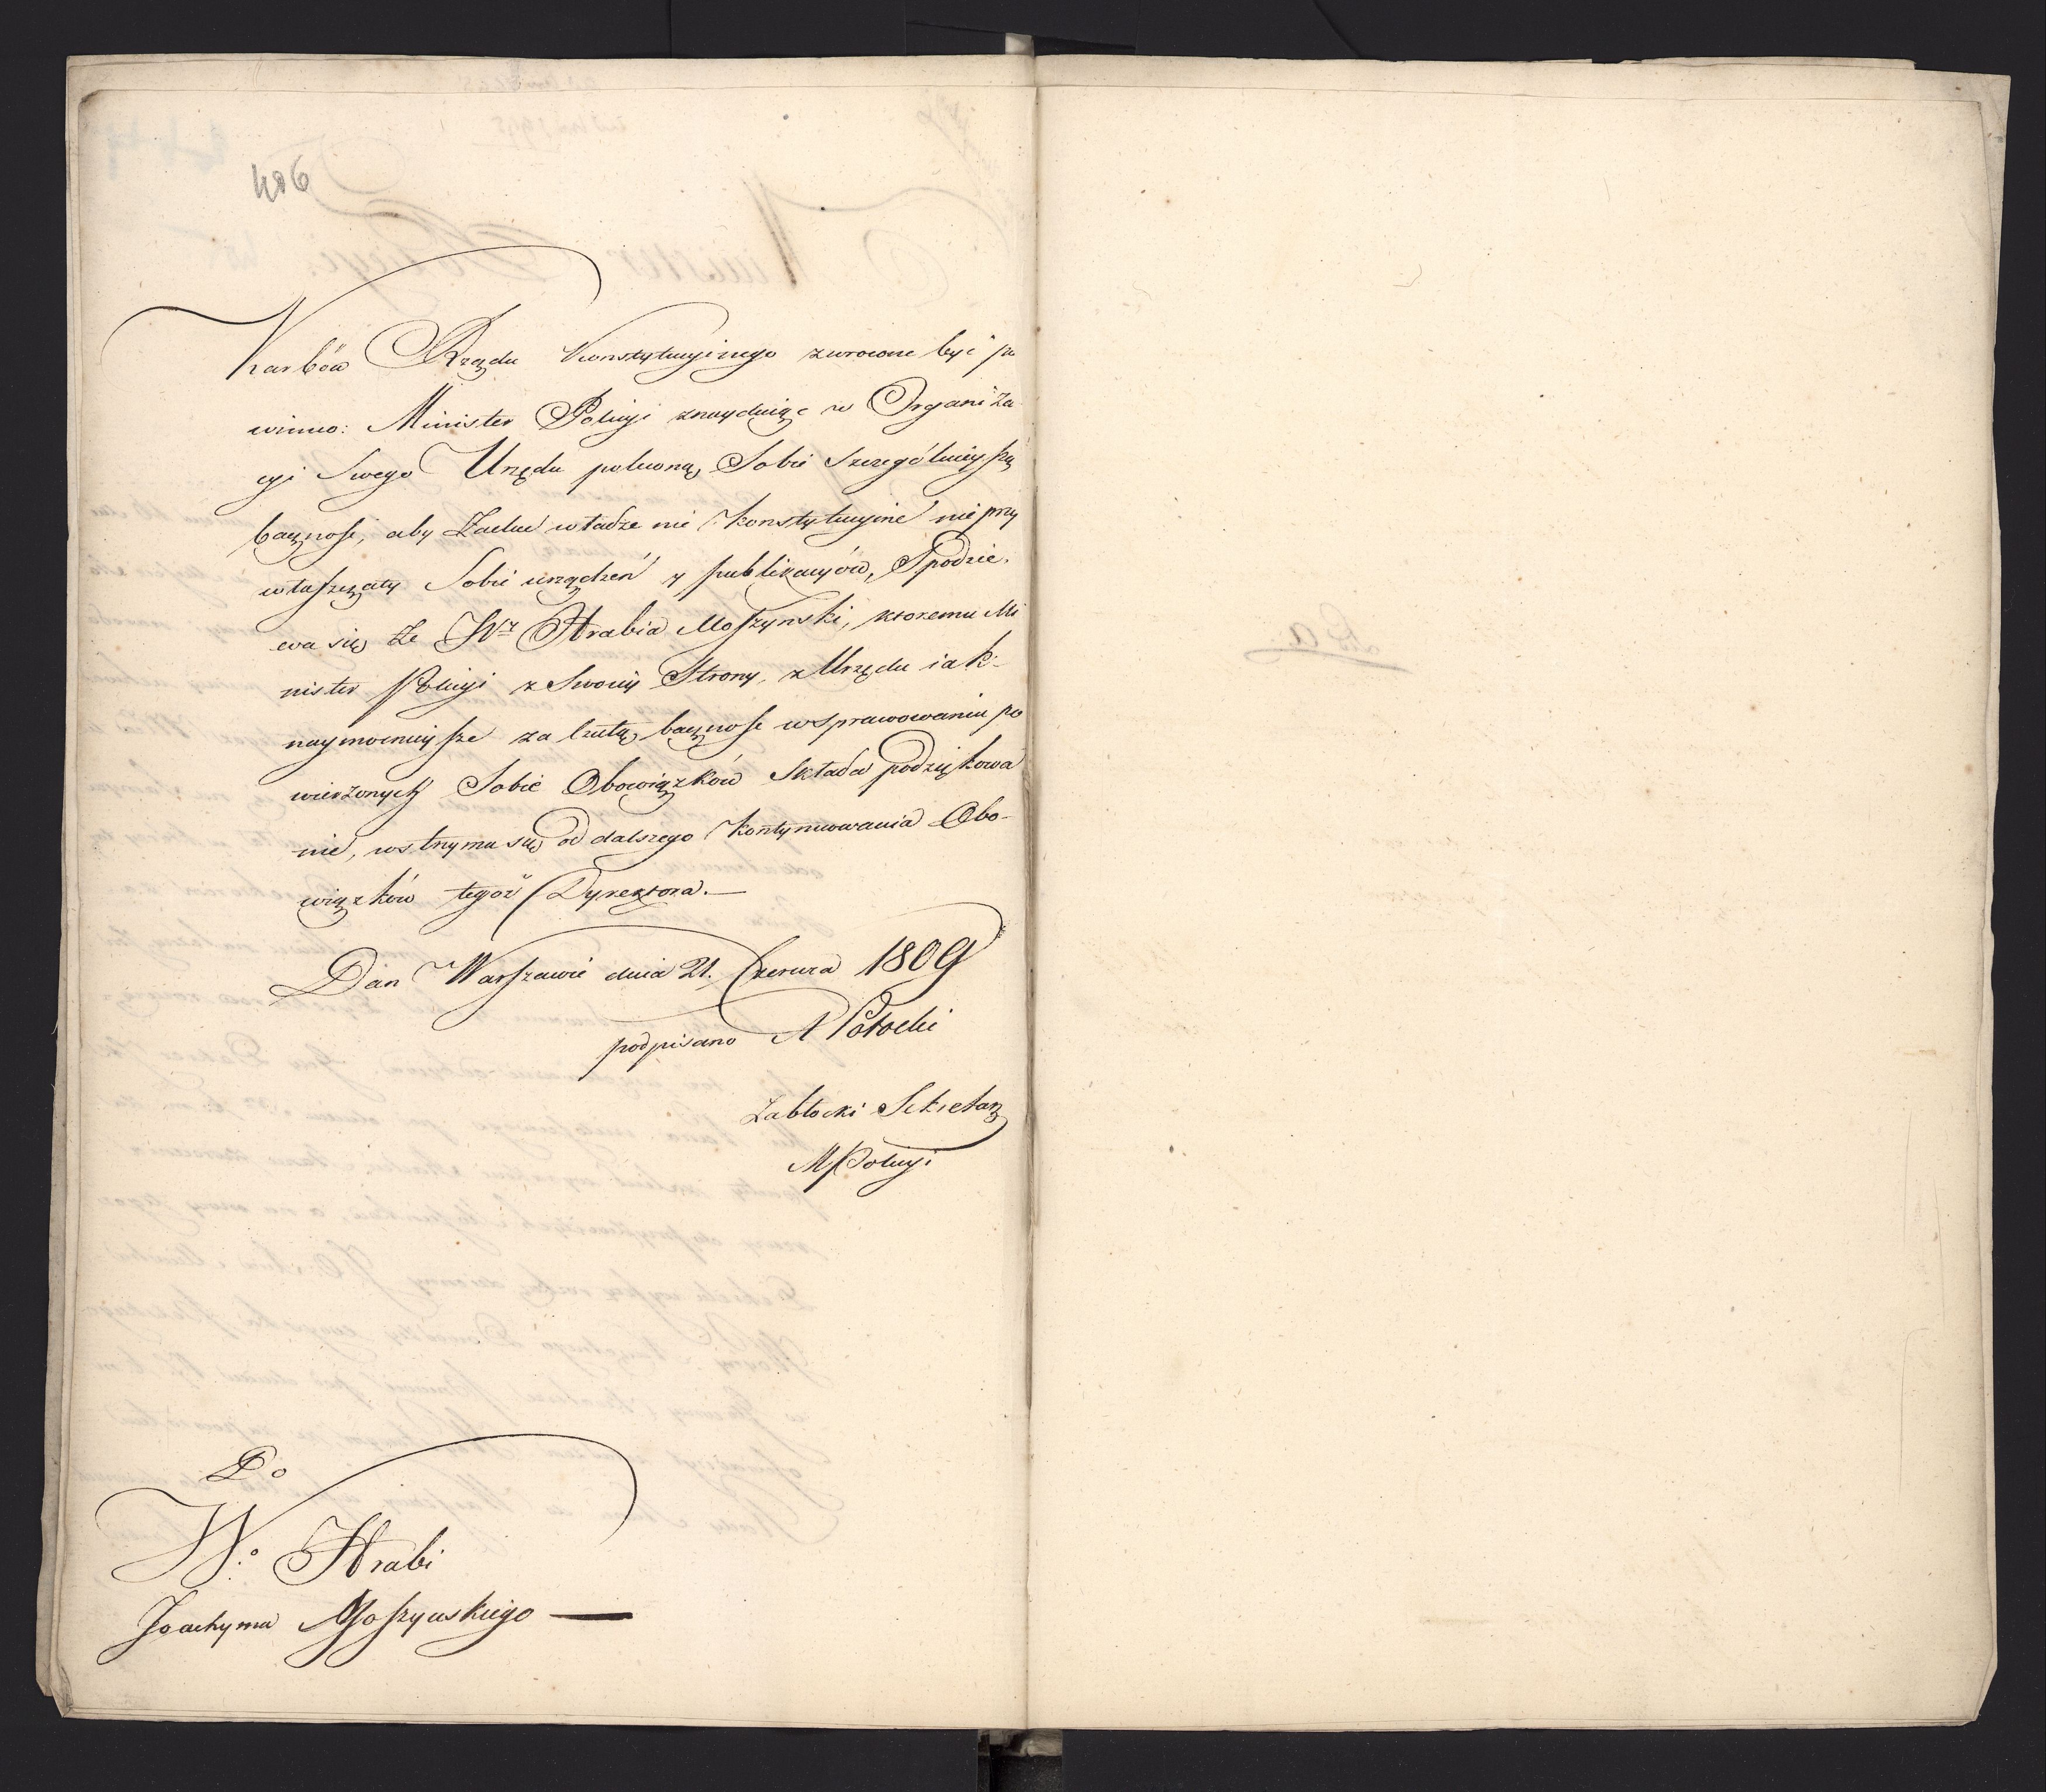 406
Karbów Rządu Konstytucyinego zwrocone być po
winno: Minister Policyi znayduiąc w Organiza
cyi Swego Urzędu poleconą Sobie Szczególnieyszą
baczność, aby Żadne władze nie Konstytucyine nie przy
właszczały Sobie urządzeń y publikacyów, Spodzie,
wa się że JWr. Hrabia Moszynski, ktoremu Mi
nister Policyi z Swoiey Strony, z Urzędu iak
naymocnieysze za czułą baczność w sprawowaniu po
wierzonych Sobie Obowiązków Składa podziękowa
nie, wstrzyma się od dalszego kontynuowania Obo-
wiązków tegoż Dyrektora.—
Dan w Warszawie dnia 21. Czerwca 1809
podpisano A Potocki
Zabłocki Sekretarz
M Policyi
Do
W.o Hrabi
Joachyma Moszynskiego —